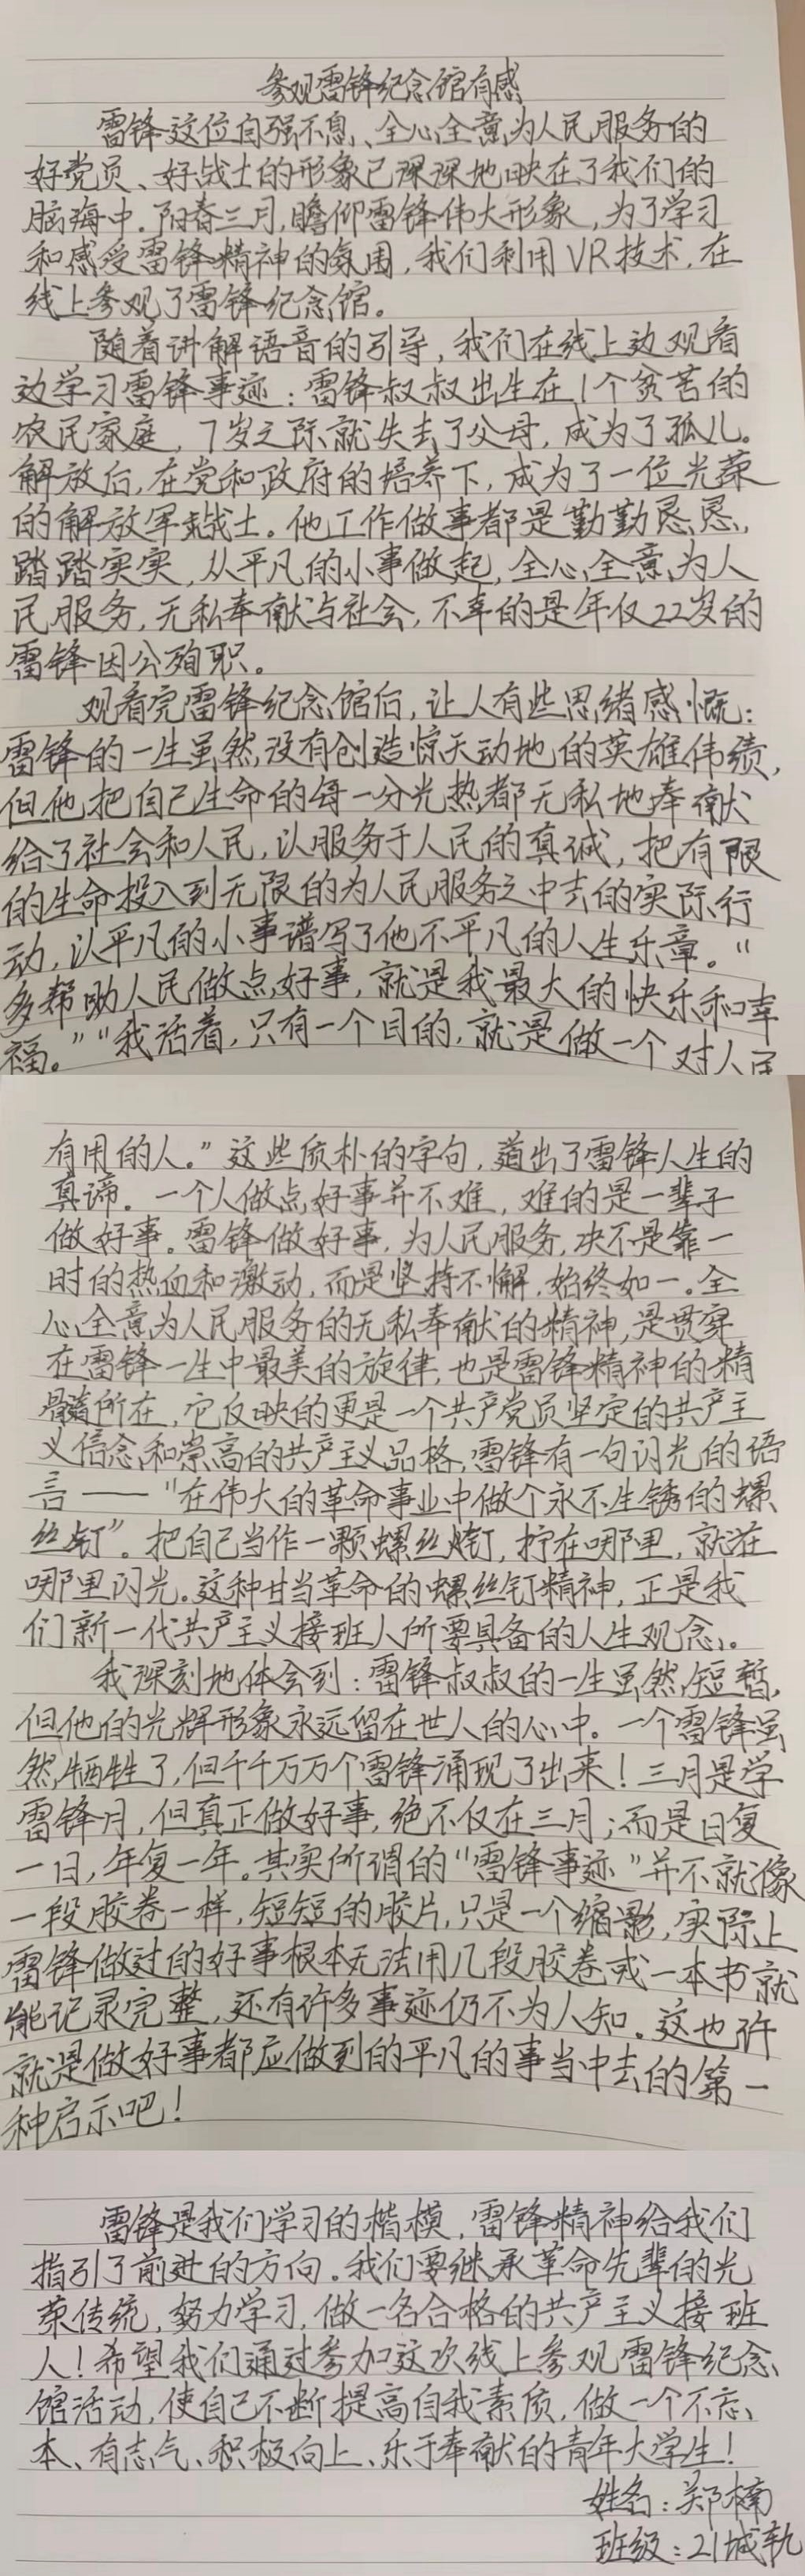 参观雷锋纪念馆有感
雷锋这位自强不息、全心全意为人民服务的
好党员、好战士的形象已深深地映在了我们的
脑海中.阳春三月,瞻仰雷锋伟大形象,为了学习
和感受雷锋精神的氛围,我们利用VR技术,在
线上参观了雷锋纪念馆。
随着讲解语音的引导,我们在线上边观看
边学习雷锋事迹:雷锋叔叔出生在1个贫苦的
农民家庭,7岁之际就失去了父母,成为了孤儿。
解放后,在党和政府的培养下,成为了一位光荣
的解放军战士。他工作做事都是勤勤恳恳,
踏踏实实,从平凡的小事做起,全心全意为人
民服务,无私奉献与社会,不幸的是年仅22岁的
雷锋因公殉职。
观看完雷锋纪念馆后,让人有些思绪感慨:
雷锋的一生虽然没有创造惊天动地的英雄伟绩,
但他把自己生命的每一分光热都无私地奉献
给了社会和人民,以服务于人民的真诚,把有限
的生命投入到无限的为人民服务之中去的实际行
动,以平凡的小事谱写了他不平凡的人生乐章。"
多帮助人民做点好事,就是我最大的快乐和幸
福。""我活着,只有一个目的,就是做一个对人民
有用的人。"这些质朴的字句,道出了雷锋人生的
真谛.一个人做点好事并不难,难的是一辈子
做好事。雷锋做好事,为人民服务,决不是靠一
时的热血和激动,而是坚持不懈,始终如一。全
心全意为人民服务的无私奉献的精神,是贯穿
在雷锋一生中最美的旋律,也是雷锋精神的精
髓所在,它反映的更是一个共产党员坚定的共产主
义信念和崇高的共产主义品格,雷锋有一句闪光的语
言——"在伟大的革命事业中做个永不生锈的螺
丝钉"。把自己当作一颗螺丝钉,拧在哪里,就在
哪里闪光。这种甘当革命的螺丝钉精神,正是我
们新一代共产主义接班人所要具备的人生观念。
我深刻地体会到:雷锋叔叔的一生虽然短暂,
但他的光辉形象永远留在世人的心中。一个雷锋虽
然牺牲了,但千千万万个雷锋涌现了出来!三月是学
雷锋月,但真正做好事,绝不仅在三月;而是日复
一日,年复一年。其实所谓的"雷锋事迹"并不就像
一段胶卷一样,短短的胶片,只是一个缩影,实际上
雷锋做过的好事根本无法用几段胶卷或一本书就
能记录完整,还有许多事迹仍不为人知.这也许
就是做好事都应做到的平凡的事当中去的第一
种启示吧!
雷锋是我们学习的楷模,雷锋精神给我们
指引了前进的方向.我们要继承革命先辈的光
荣传统,努力学习,做一名合格的共产主义接班
人!希望我们通过参加这次线上参观雷锋纪念
馆活动,使自己不断提高自我素质,做一个不忘
本、有志气、积极向上、乐于奉献的青年大学生!
姓名:郑楠
班级:21城轨